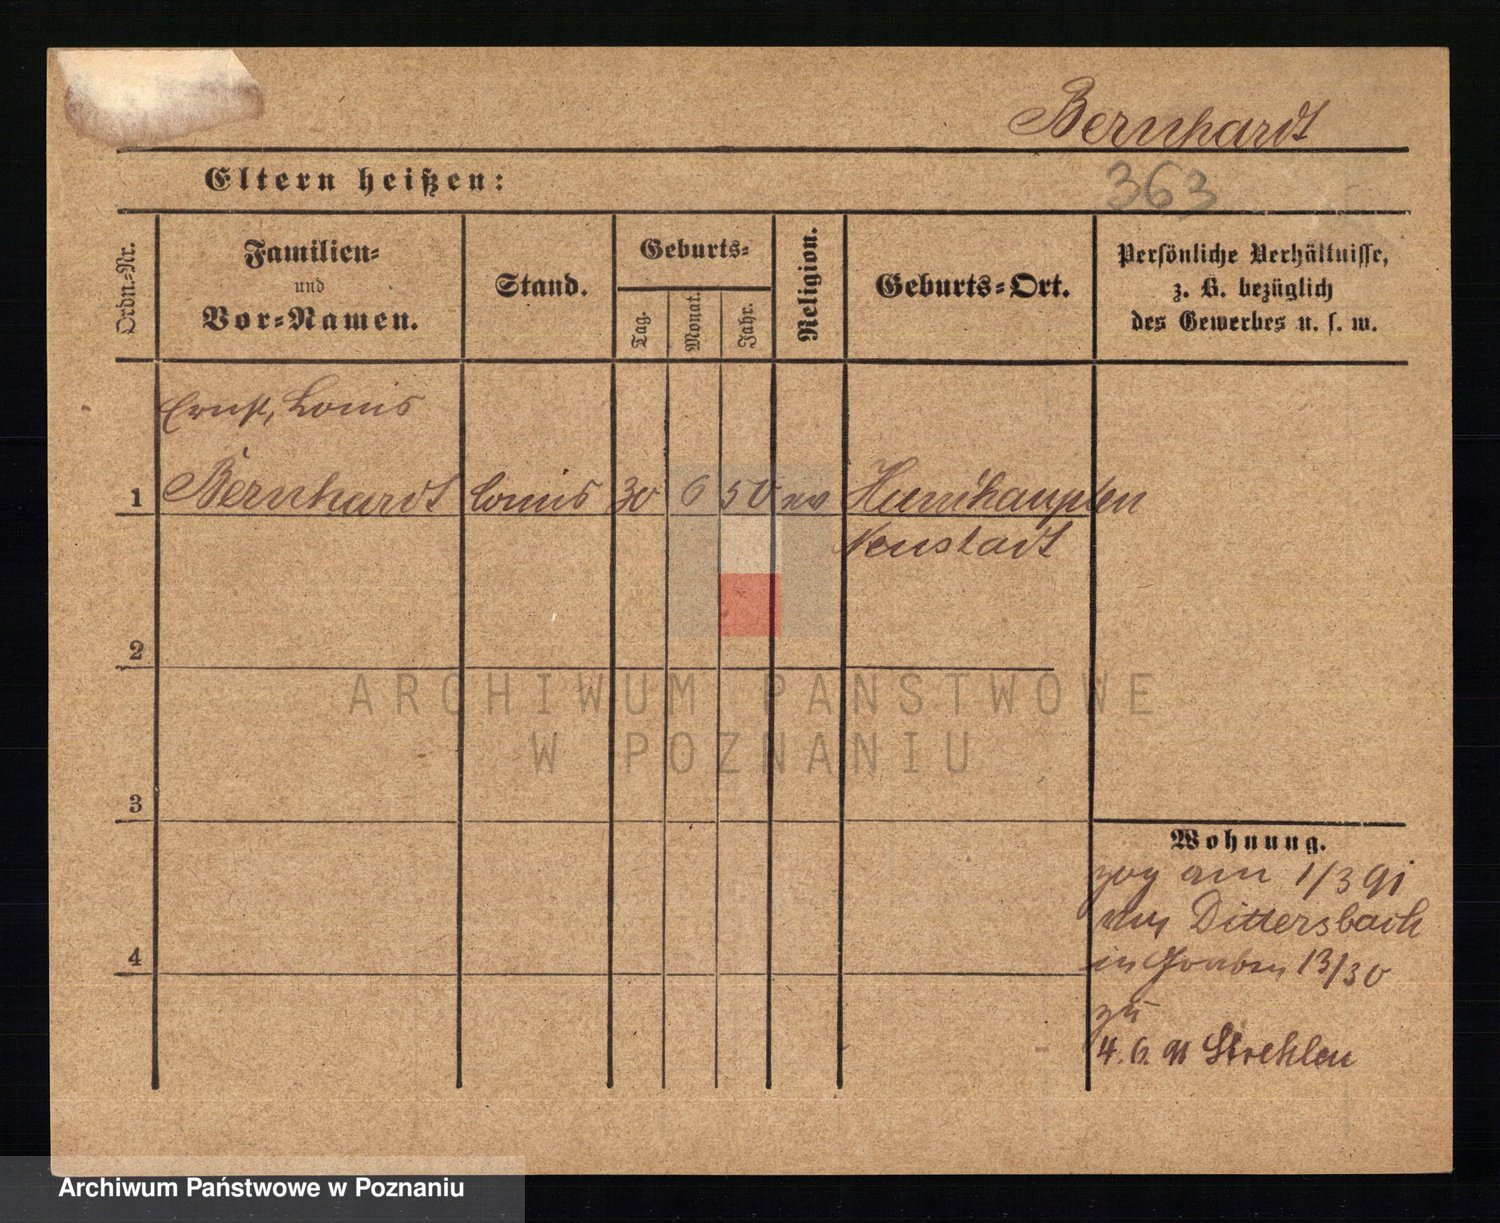 Bernhardt
Eltern heißen:
363
Ordn.=Nr.
Familien=
und
Vor=Namen.
Stand.
Geburts=
Tag.
Monat.
Jahr.
Religion.
Geburts=Ort.
Persönliche Verhältnisse,
z. B. bezüglich
des Gewerbes u. s. w.
Ernst, Louis
1 Bernhardt 30 6 50 ev
Neustadt
2
ARCHIWUM PAŃSTWOWE
W POZNANIU
3
Wohnung.
zog am 1/3 91
Dittersbach
in Graben 13/30
zu
4
4. 6. 91 Strehlen
Archiwum Państwowe w Poznaniu